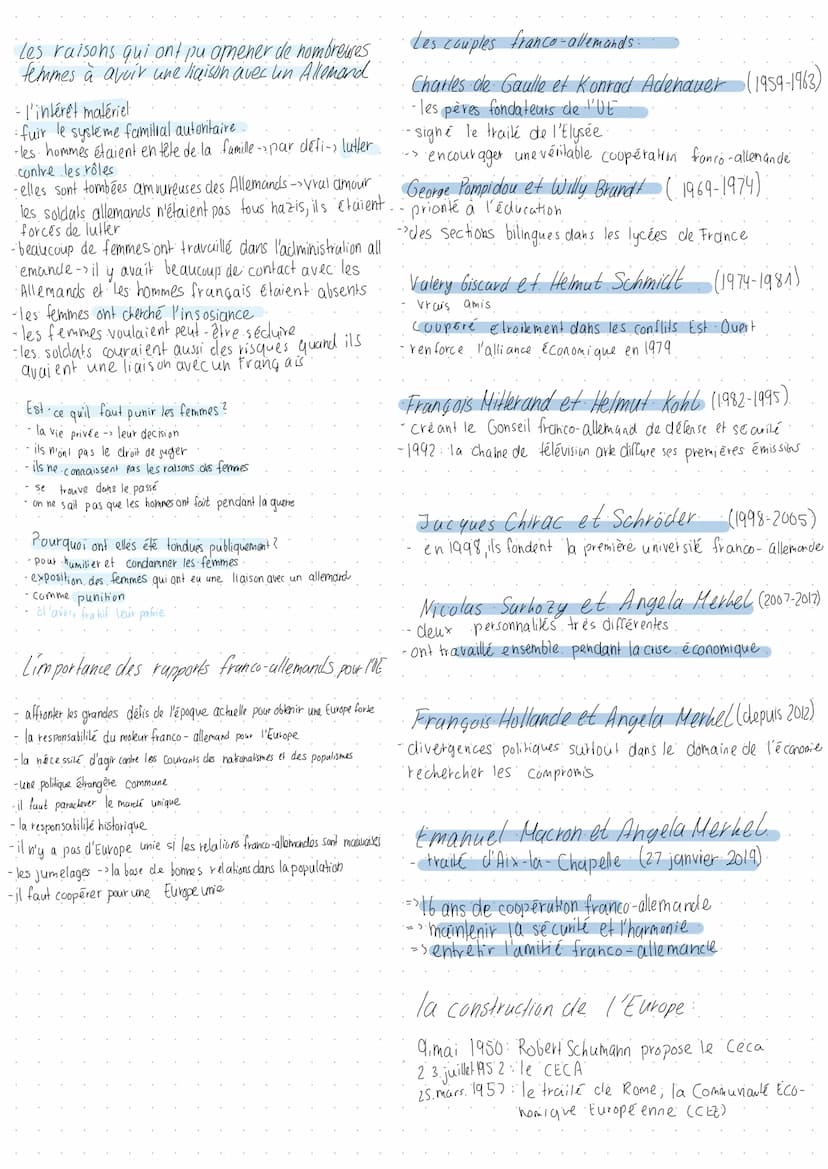 Les raisons qui ont pu amener de nombreuses
femmes à avoir une liaison avec un Allemand
- l'intérêt matériel
- fuir le système familial autoritaire
- les hommes étaient en tête de la famille -> par défi -> lutter
contre les rôles
- elles sont tombées amoureuses des Allemands -> vrai amour
les soldats allemands n'étaient pas tous nazis, ils étaient
forcés de lutter
- beaucoup de femmes ont travaillé dans l'administration all
emande -> il y avait beaucoup de contact avec les
Allemands et les hommes français étaient absents
- les femmes ont cherché l'insosiance
- les femmes voulaient peut-être séduire
- les soldats couraient aussi des risques quand ils
avaient une liaison avec un Français
Est-ce qu'il faut punir les femmes?
- la vie privée -> leur decision
- ils n'ont pas le droit de juger
- ils ne connaissent pas les raisons des femmes
- se trouve dans le passé
- on ne sait pas que les hommes ont fait pendant la guerre
Pourquoi ont elles été tondues publiquement?
- pour humilier et condamner les femmes
- exposition des femmes qui ont eu une liaison avec un allemand
- comme punition
- d'avoir trahit leur patrie
L'importance des rapports franco-allemands pour l'UE
- affronter les grandes défis de l'époque actuelle pour obtenir une Europe forte
- la responsabilité du moteur franco-allemand pour l'Europe
- la nécessité d'agir contre les courants des nationalismes et des populismes
- une politique étrangère commune
- il faut parachever le marché unique
- la responsabilité historique
- il n'y a pas d'Europe unie si les relations franco-allemandes sont mauvaises
- les jumelages -> la base de bonnes relations dans la population
- il faut coopérer pour une Europe unie
Les couples franco-allemands:
Charles de Gaulle et Konrad Adenauer (1959-1963)
- les pères fondateurs de l'UE
- signé le traité de l'Elysée
-> encourager une véritable coopération franco-allemande
George Pompidou et Willy Brandt (1969-1974)
- priorité à l'éducation
-> des sections bilingues dans les lycées de France
Valery Giscard et Helmut Schmidt (1974-1981)
- vrais amis
coopéré étroitement dans les conflits Est-Ouest
- renforce l'alliance économique en 1979
François Mitterand et Helmut Kohl (1982-1995)
- créant le Conseil franco-allemand de défense et sécurité
- 1992: la chaîne de télévision arte diffuse ses premières émissions
Jacques Chirac et Schröder (1998-2005)
- en 1998, ils fondent la première université franco-allemande
Nicolas Sarkozy et Angela Merkel (2007-2012)
- deux personnalités très différentes
- ont travaillé ensemble pendant la crise économique
François Hollande et Angela Merkel (depuis 2012)
- divergences politiques surtout dans le domaine de l'économie
rechercher les compromis
Emanuel Macron et Angela Merkel
- traité d'Aix-la-Chapelle (27 janvier 2019)
=> 16 ans de coopération franco-allemande
=> maintenir la sécurité et l'harmonie
=> entretir l'amitié franco-allemande
la construction de l'Europe:
9. mai 1950: Robert Schumann propose le Ceca
23. juillet 1952: le CECA
25. mars. 1957: le traité de Rome, la Communauté Éco-
nomique Européenne (CEE)